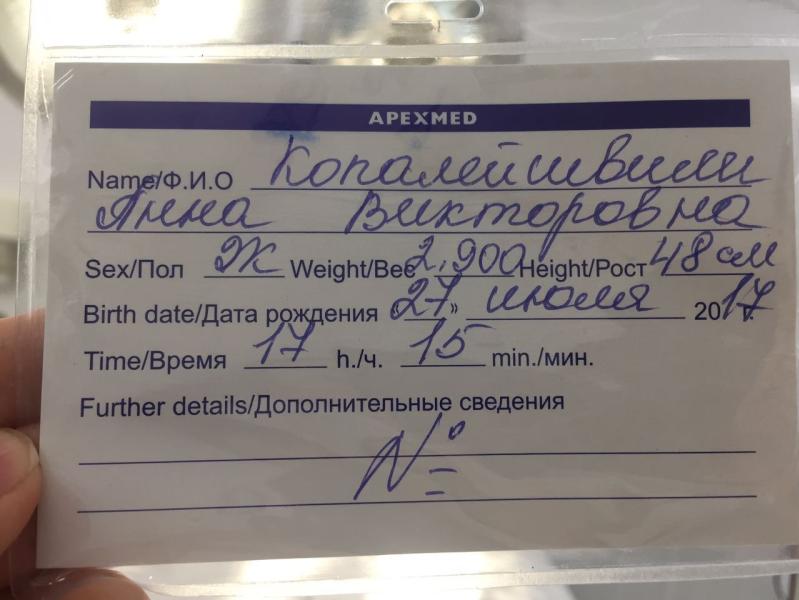 APEXMED
Name/Ф.И.О Копалейшвили
Анна Викторовна
Sex/Пол Ж Weight/Вес 2,900 Height/Рост 48 см
Birth date/Дата рождения 27 » июля 2017 г.
Time/Время 17 h./ч. 15 min./мин.
Further details/Дополнительные сведения
№